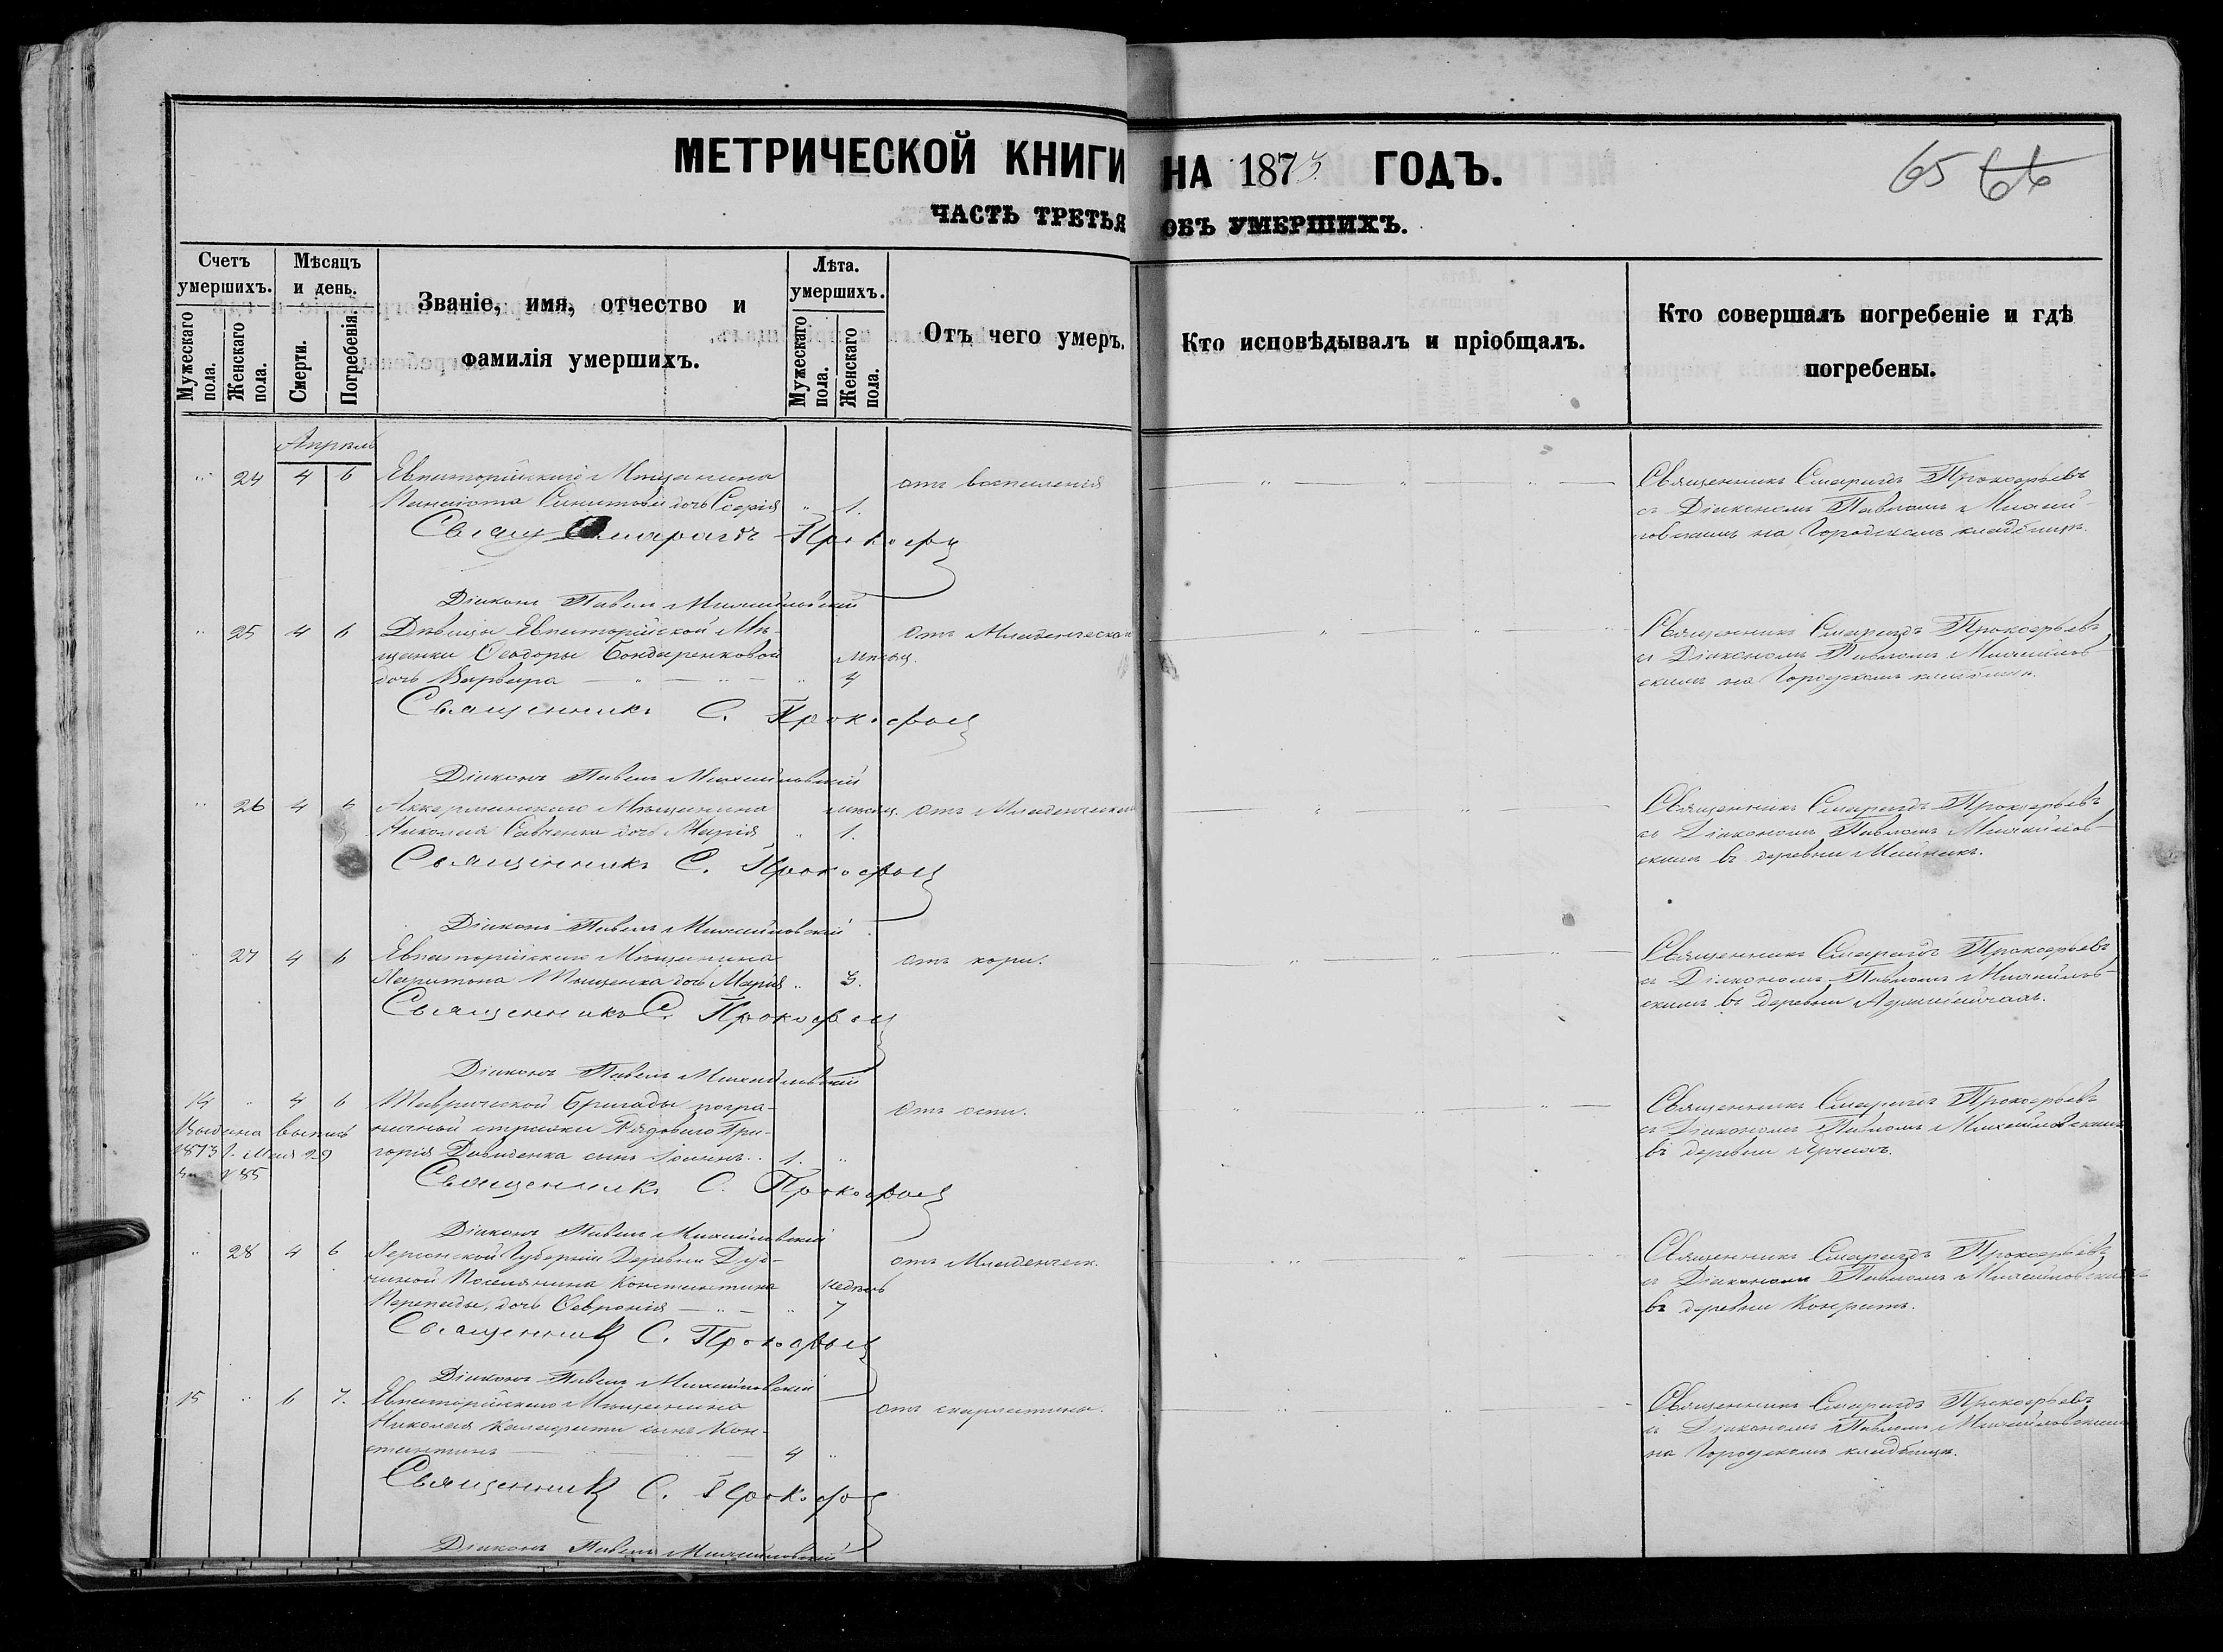 МЕТРИЧЕСКОЙ КНИГИ НА 1873 ГОДЪ.
65 66
ЧАСТЬ ТРЕТЬЯ ОБЪ УМЕРШИХЪ.
Счетъ умершихъ.
Мужескаго пола.
Женскаго пола.
Мѣсяцъ и день.
Смерти.
Погребенія.
Званіе, имя, отчество и
фамилія умершихъ.
Лѣта.
умершихъ.
Мужескаго пола.
Женскаго пола.
Отъ чего умеръ.
Кто исповѣдывалъ и пріобщалъ.
Кто совершалъ погребеніе и гдѣ
погребены.
Апрѣль
24 4 6 Евпаторійскаго Мѣщанина отъ воспаленія
дочь 1.
Свящ Смарагдъ Прокофьев
Діаконъ Павелъ Михайловскій
Священникъ Смарагдъ Прокофьевъ
съ Діакономъ Павломъ Михай-
ловскимъ на Городскомъ кладбищѣ.
25 4 6 Дѣвицы Евпаторійской Мѣ- отъ Младенческой
щанки Ѳеодоры Бондаренковой Мѣсяц.
дочь Варвара 4
Священникъ С. Прокофьев
Діаконъ Павелъ Михайловскій
Священникъ Смарагдъ Прокофьевъ
съ Діакономъ Павломъ Михайлов-
скимъ на Городскомъ кладбищѣ.
26 4 6 Аккерманскаго Мѣщанина мѣсяц. отъ Младенческой
Николая Савченка дочь Марія 1.
Священникъ С. Прокофьев
Діаконъ Павелъ Михайловскій
Священникъ Смарагдъ Прокофьевъ
съ Діакономъ Павломъ Михайлов-
скимъ въ деревни Майнакъ.
27 4 6 Евпаторійскаго Мѣщанина отъ кори.
Харитона дочь Марія 3.
Священникъ С. Прокофьев
Діаконъ Павелъ Михайловскій
Священникъ Смарагдъ Прокофьевъ
съ Діакономъ Павломъ Михайлов-
скимъ въ деревни
14 4 6 Таврической Бригады погра- отъ оспы.
ничной стражи Рядового Гри-
горія Давиденка сынъ 1.
Выдана выпись
1873 г. Мая 29
за № 85
Священникъ С. Прокофьев
Діаконъ Павелъ Михайловскій
Священникъ Смарагдъ Прокофьевъ
съ Діакономъ Павломъ Михайловскимъ
въ деревни
28 4 6 Херсонской Губерніи Деревни отъ Младенческ.
Поселянина Константина недѣль
дочь Февронія 7
Священникъ С. Прокофьев
Діаконъ Павелъ Михайловскій
Священникъ Смарагдъ Прокофьевъ
съ Діакономъ Павломъ Михайловскимъ
въ деревни Конратъ.
15 6 7. Евпаторійскаго Мѣщанина отъ скарлатины.
Николая сынъ Кон-
стантинъ 4
Священникъ С. Прокофьев
Діаконъ Павелъ Михайловскій
Священникъ Смарагдъ Прокофьевъ
съ Діакономъ Павломъ Михайловскимъ
на Городскомъ кладбищѣ.